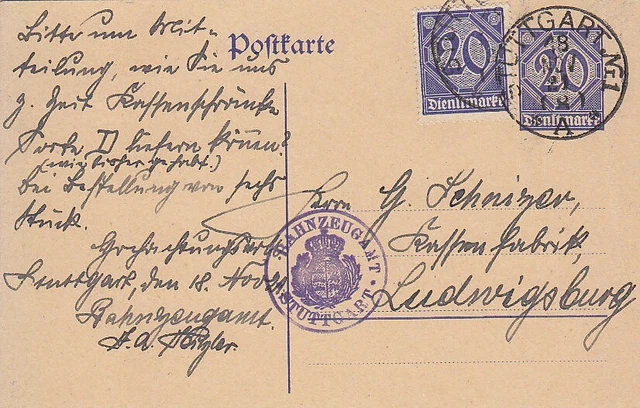 Bitte um Mit-
teilung, wie Sie uns
z. Zeit Kassenschränke
Sorte II liefern können?
(wie bisher gehabt.)
bei Bestellung von sechs
Stück.
Hochachtungsvoll
Stuttgart, den 18. Nov.
Bahnzeugamt.
Postkarte
20
Dienstmarke
20
Dienstmarke
STUTTGART Nº1
18
21
A
BAHNZEUGAMT
STUTTGART
Herrn G. Schnizer,
Kassenfabrik,
Ludwigsburg